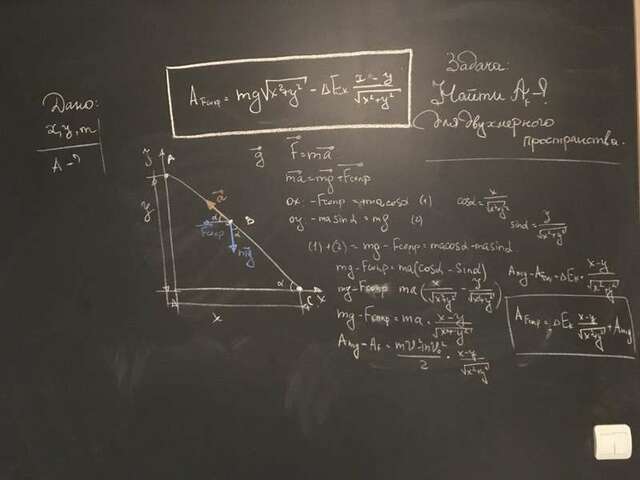 A_Fсопр = mg√x²+y² - ΔEк (x-y)/√x²+y²
Задача:
Найти A_F-?
для двухмерного
пространства.
Дано:
x, y, m
A-?
y
A
y
a⃗
α
B
F⃗сопр
α
mg⃗
α
C
x
x
g⃗ F⃗=ma⃗
ma⃗=mg⃗+F⃗сопр
ox: -Fсопр=+macosα (1)
oy: -masinα=mg (2)
cosα=x/√x²+y²
sinα=y/√x²+y²
(1)+(2)= mg-Fсопр=macosα-masinα.
mg-Fсопр=ma(cosα-sinα)
mg-Fсопр ma(x/√x²+y² - y/√x²+y²)
mg-Fсопр=ma·(x-y)/√x²+y²
A_mg-A_F=(mV²-mV₀²)/2·(x-y)/√x²+y²
A_mg-A_Fсопр=ΔEк·(x-y)/√x²+y²
A_Fсопр=-ΔEк (x-y)/√x²+y²+A_mg